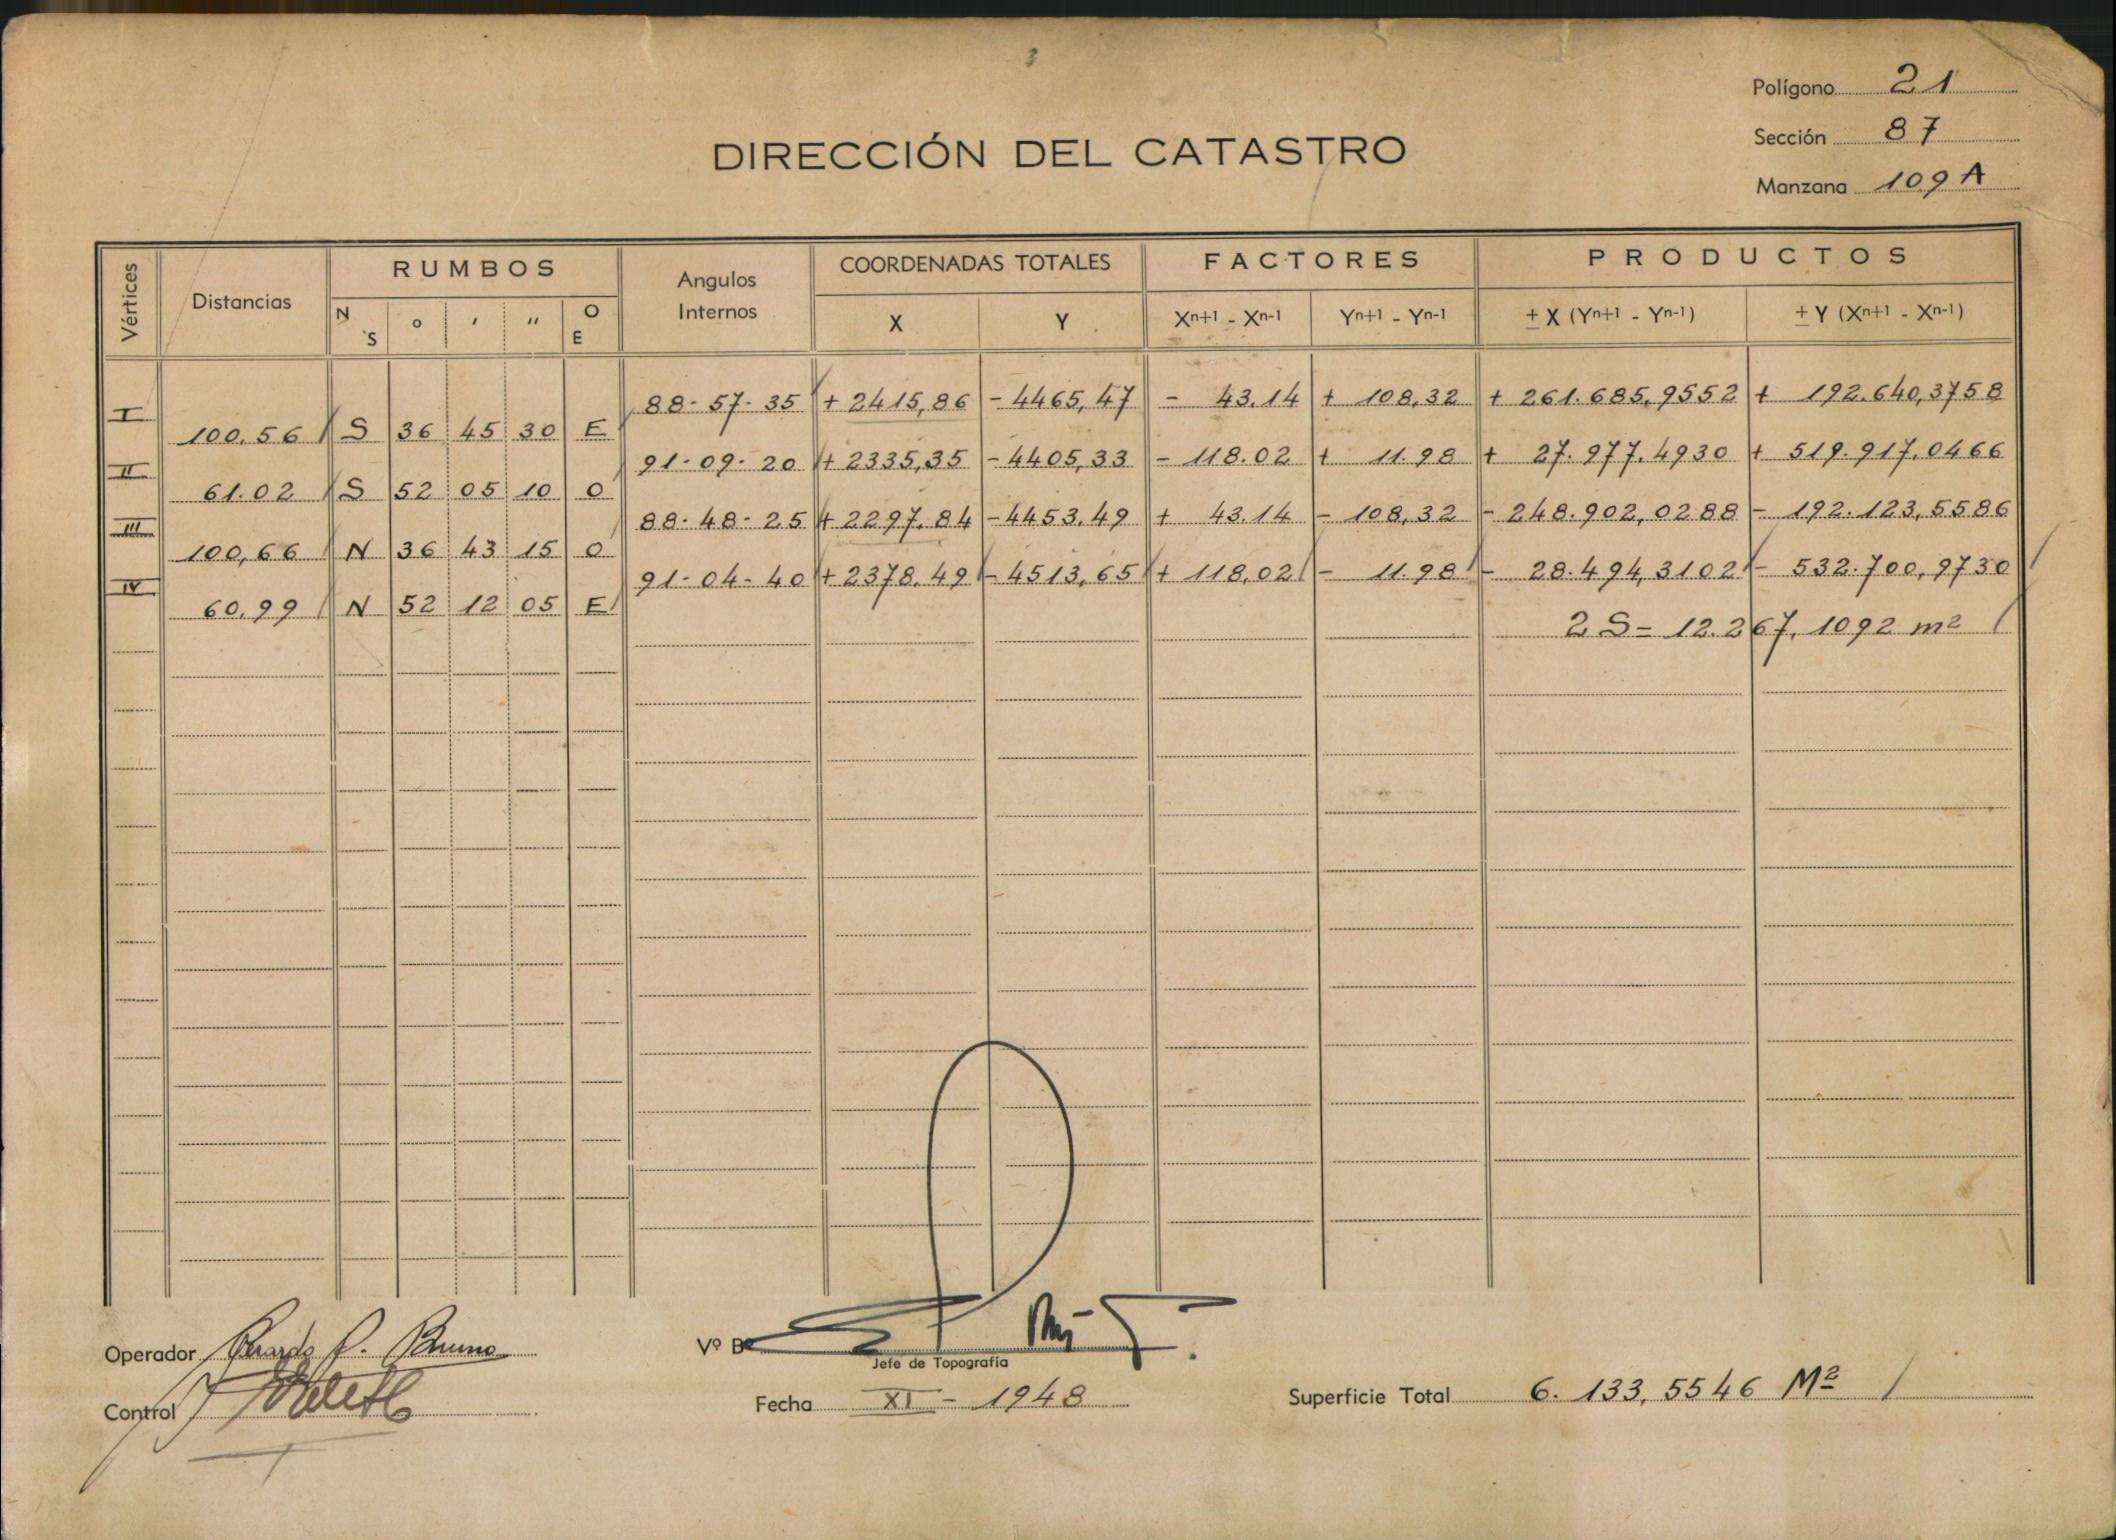 Polígono 21
Sección 87
Manzana 109 A
DIRECCIÓN DEL CATASTRO
Vértices Distancias RUMBOS Angulos Internos COORDENADAS TOTALES FACTORES PRODUCTOS
N S ° ' " O E X Y Xn+1 - Xn-1 Yn+1 - Yn-1 ± X (Yn+1 - Yn-1) ± Y (Xn+1 - Xn-1)
88-57-35 + 2415,86 - 4465,47 - 43.14 + 108,32 + 261.685,9552 + 192.640,3758
I 100.56 S 36 45 30 E
91-09-20 + 2335,35 - 4405,33 - 118.02 + 11.98 + 27.977.4930 + 519.917,0466
II 61.02 S 52 05 10 O
88-48-25 + 2297.84 - 4453.49 + 43.14 - 108,32 - 248.902,0288 - 192.123,5586
III 100,66 N 36 43 15 O
91-04-40 + 2378.49 - 4513,65 + 118,02 - 11.98 - 28.494,3102 - 532.700,9730
IV 60,99 N 52 12 05 E
2 S = 12.267,1092 m²
Operador Gerardo P. Bruno
Vº Bº
Jefe de Topografía
Control
Fecha XI - 1948
Superficie Total 6.133,5546 M²